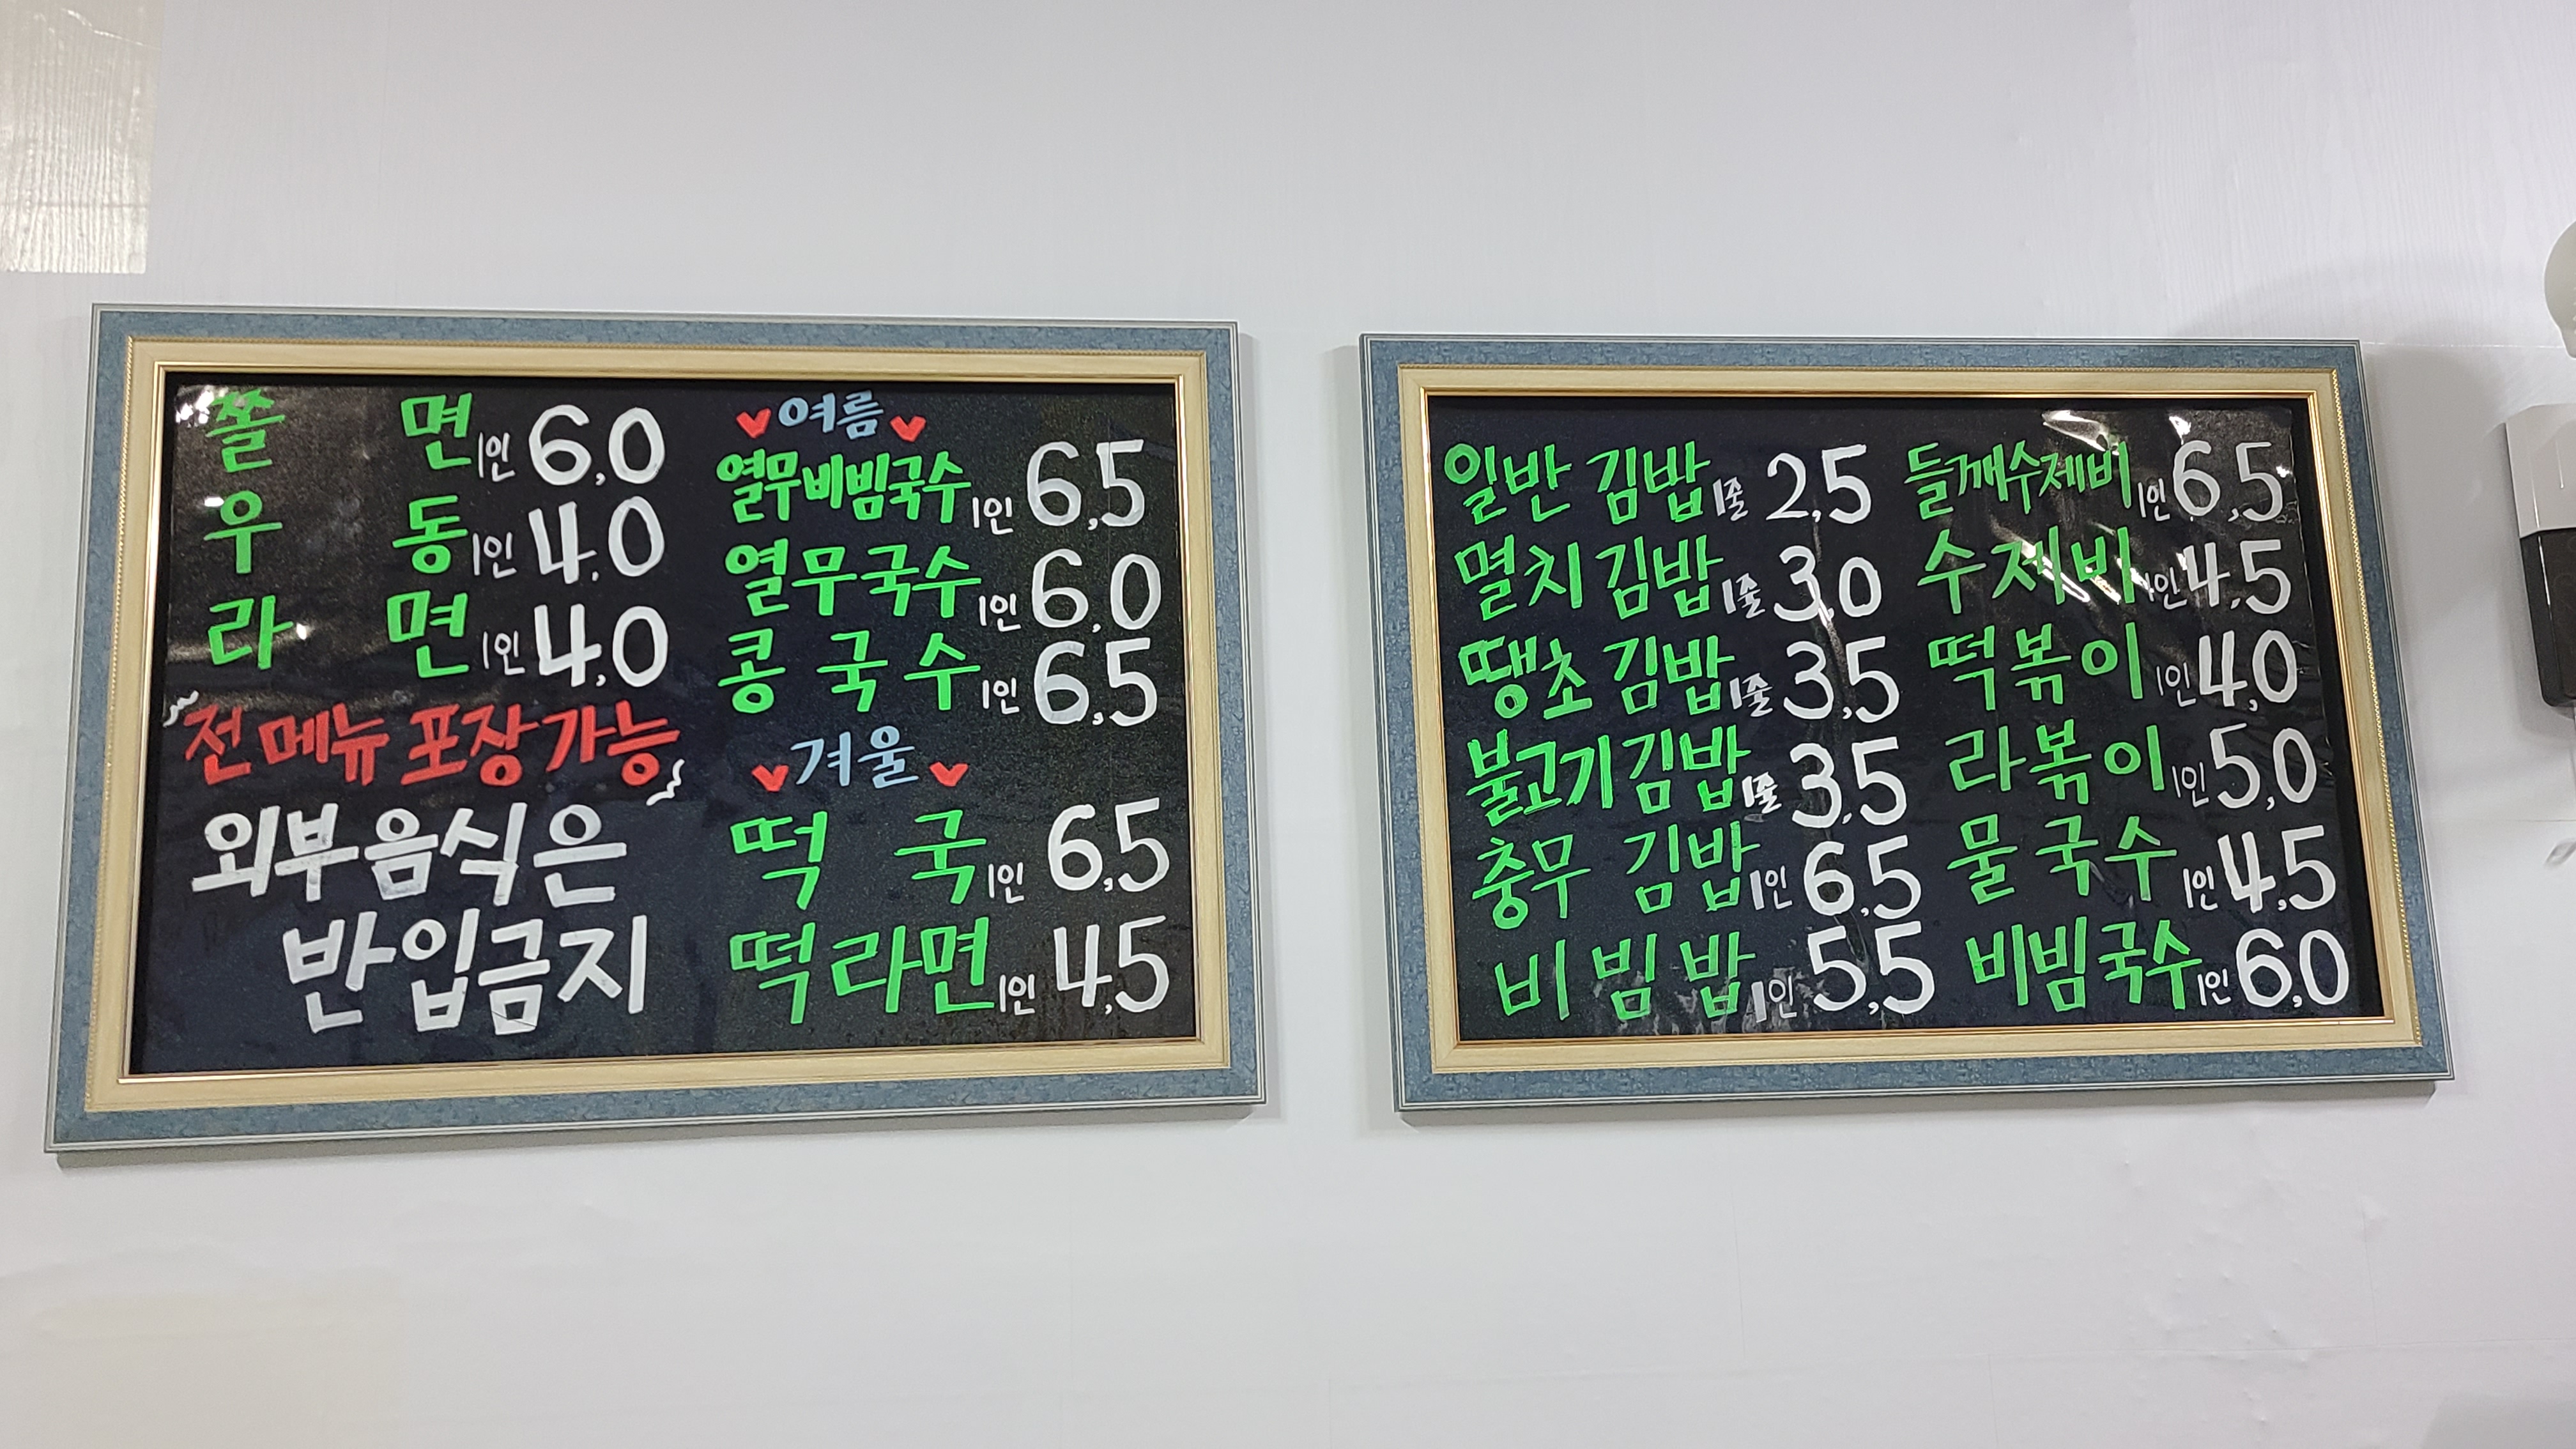 쫄 면 1인 6,0
우 동 1인 4,0
라 면 1인 4,0
전메뉴 포장가능
외부음식은
반입금지
여름
열무비빔국수 1인 6,5
열무국수 1인 6,0
콩 국 수 1인 6,5
겨울
떡 국 1인 6,5
떡라면 1인 4,5
일반 김밥 1줄 2,5
멸치 김밥 1줄 3,0
땡초 김밥 1줄 3,5
불고기김밥 1줄 3,5
충무 김밥 1인 6,5
비 빔 밥 1인 5,5
들깨수제비 1인 6,5
수제비 1인 4,5
떡볶이 1인 4,0
라볶이 1인 5,0
물국수 1인 4,5
비빔국수 1인 6,0